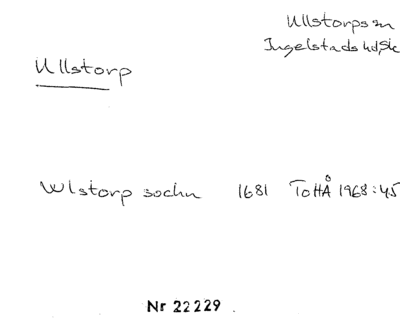 Ullstorps sn
Ingelstads hd, Sk
Ullstorp
Wlstorp sochn 1681 ToHÅ 1968:45
Nr 22229